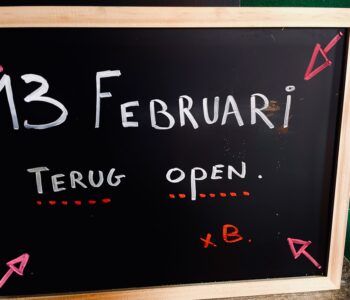 13 FEBRUARI
TERUG OPEN.
x B.